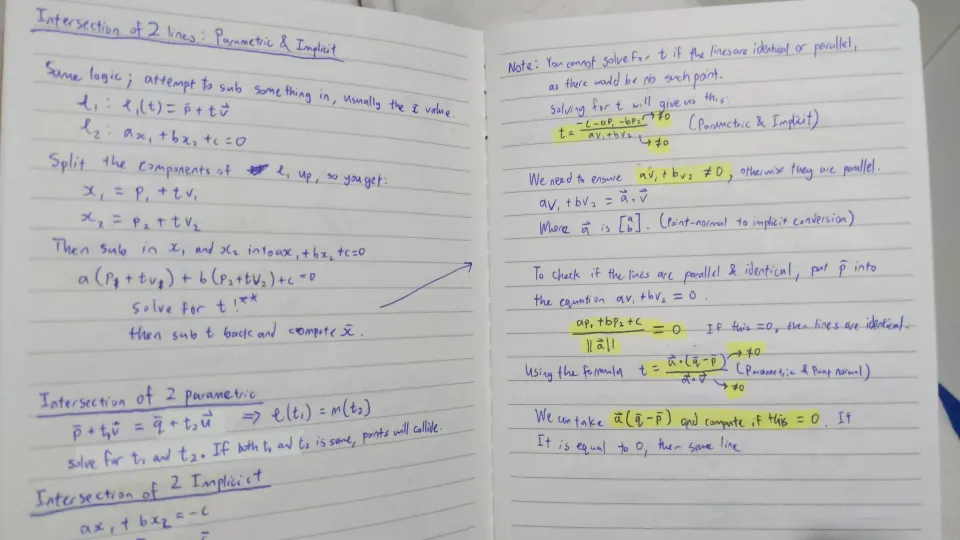 Intersection of 2 lines: Parametric & Implicit
Same logic; attempt to sub something in, usually the x value
l₁: l₁(t) = p̄ + tv⃗
l₂: ax₁ + bx₂ + c = 0
Split the components of l₁ up, so you get:
x₁ = p₁ + tv₁
x₂ = p₂ + tv₂
Then sub in x₁ and x₂ into ax₁ + bx₂ + c = 0
a(p₁ + tv₁) + b(p₂ + tv₂) + c = 0
solve for t!**
then sub t back and compute x̄.
Intersection of 2 parametric
p̄ + t₁v⃗ = q̄ + t₂u⃗ ⇒ l(t₁) = m(t₂)
solve for t₁ and t₂. If both t₁ and t₂ is same, points will collide.
Intersection of 2 Implicict
ax₁ + bx₂ = -c
Note: You cannot solve for t if the lines are identical or parallel,
as there would be no such point.
Solving for t will give us this:
t = (-c - ap₁ - bp₂ → ≠0) / (av₁ + bv₂ → ≠0) (Parametric & Implicit)
We need to ensure av₁ + bv₂ ≠ 0, otherwise they are parallel.
av₁ + bv₂ = a⃗ · v⃗
Where a⃗ is [a b]. (Point-normal to implicit conversion)
To check if the lines are parallel & identical, put p̄ into
the equation av₁ + bv₂ = 0.
(ap₁ + bp₂ + c) / ||a⃗|| = 0 If this = 0, then lines are identical.
Using the formula t = (a⃗ · (q̄ - p̄) → ≠0) / (a⃗ · v⃗ → ≠0) (Parametric & normal)
We can take a⃗(q̄ - p̄) and compute if this = 0. It
It is equal to 0, then same line